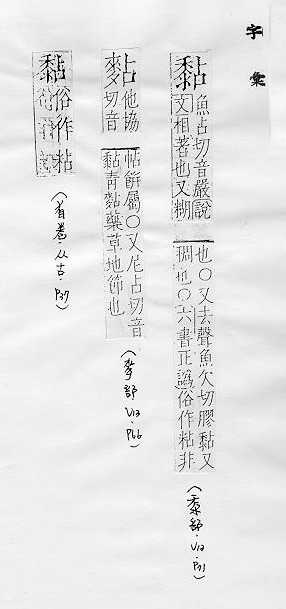 字彙
黏
魚占切音嚴說
文相著也又糊
也○又去聲魚欠切膠黏又
稠也○六書正譌俗作粘非
(黍部.V13.P91)
他協
切音
帖餅屬○又尼占切音
黏青黏藥草地節也
(麥部 V13.P66)
黏
俗作粘
(首卷.从古.P37)